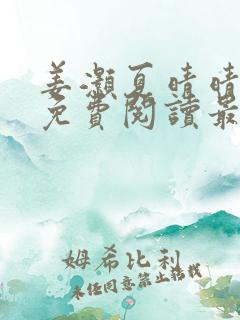 姜灏夏晴晴
免費閱讀最
姆希比利
未經同意禁止轉載